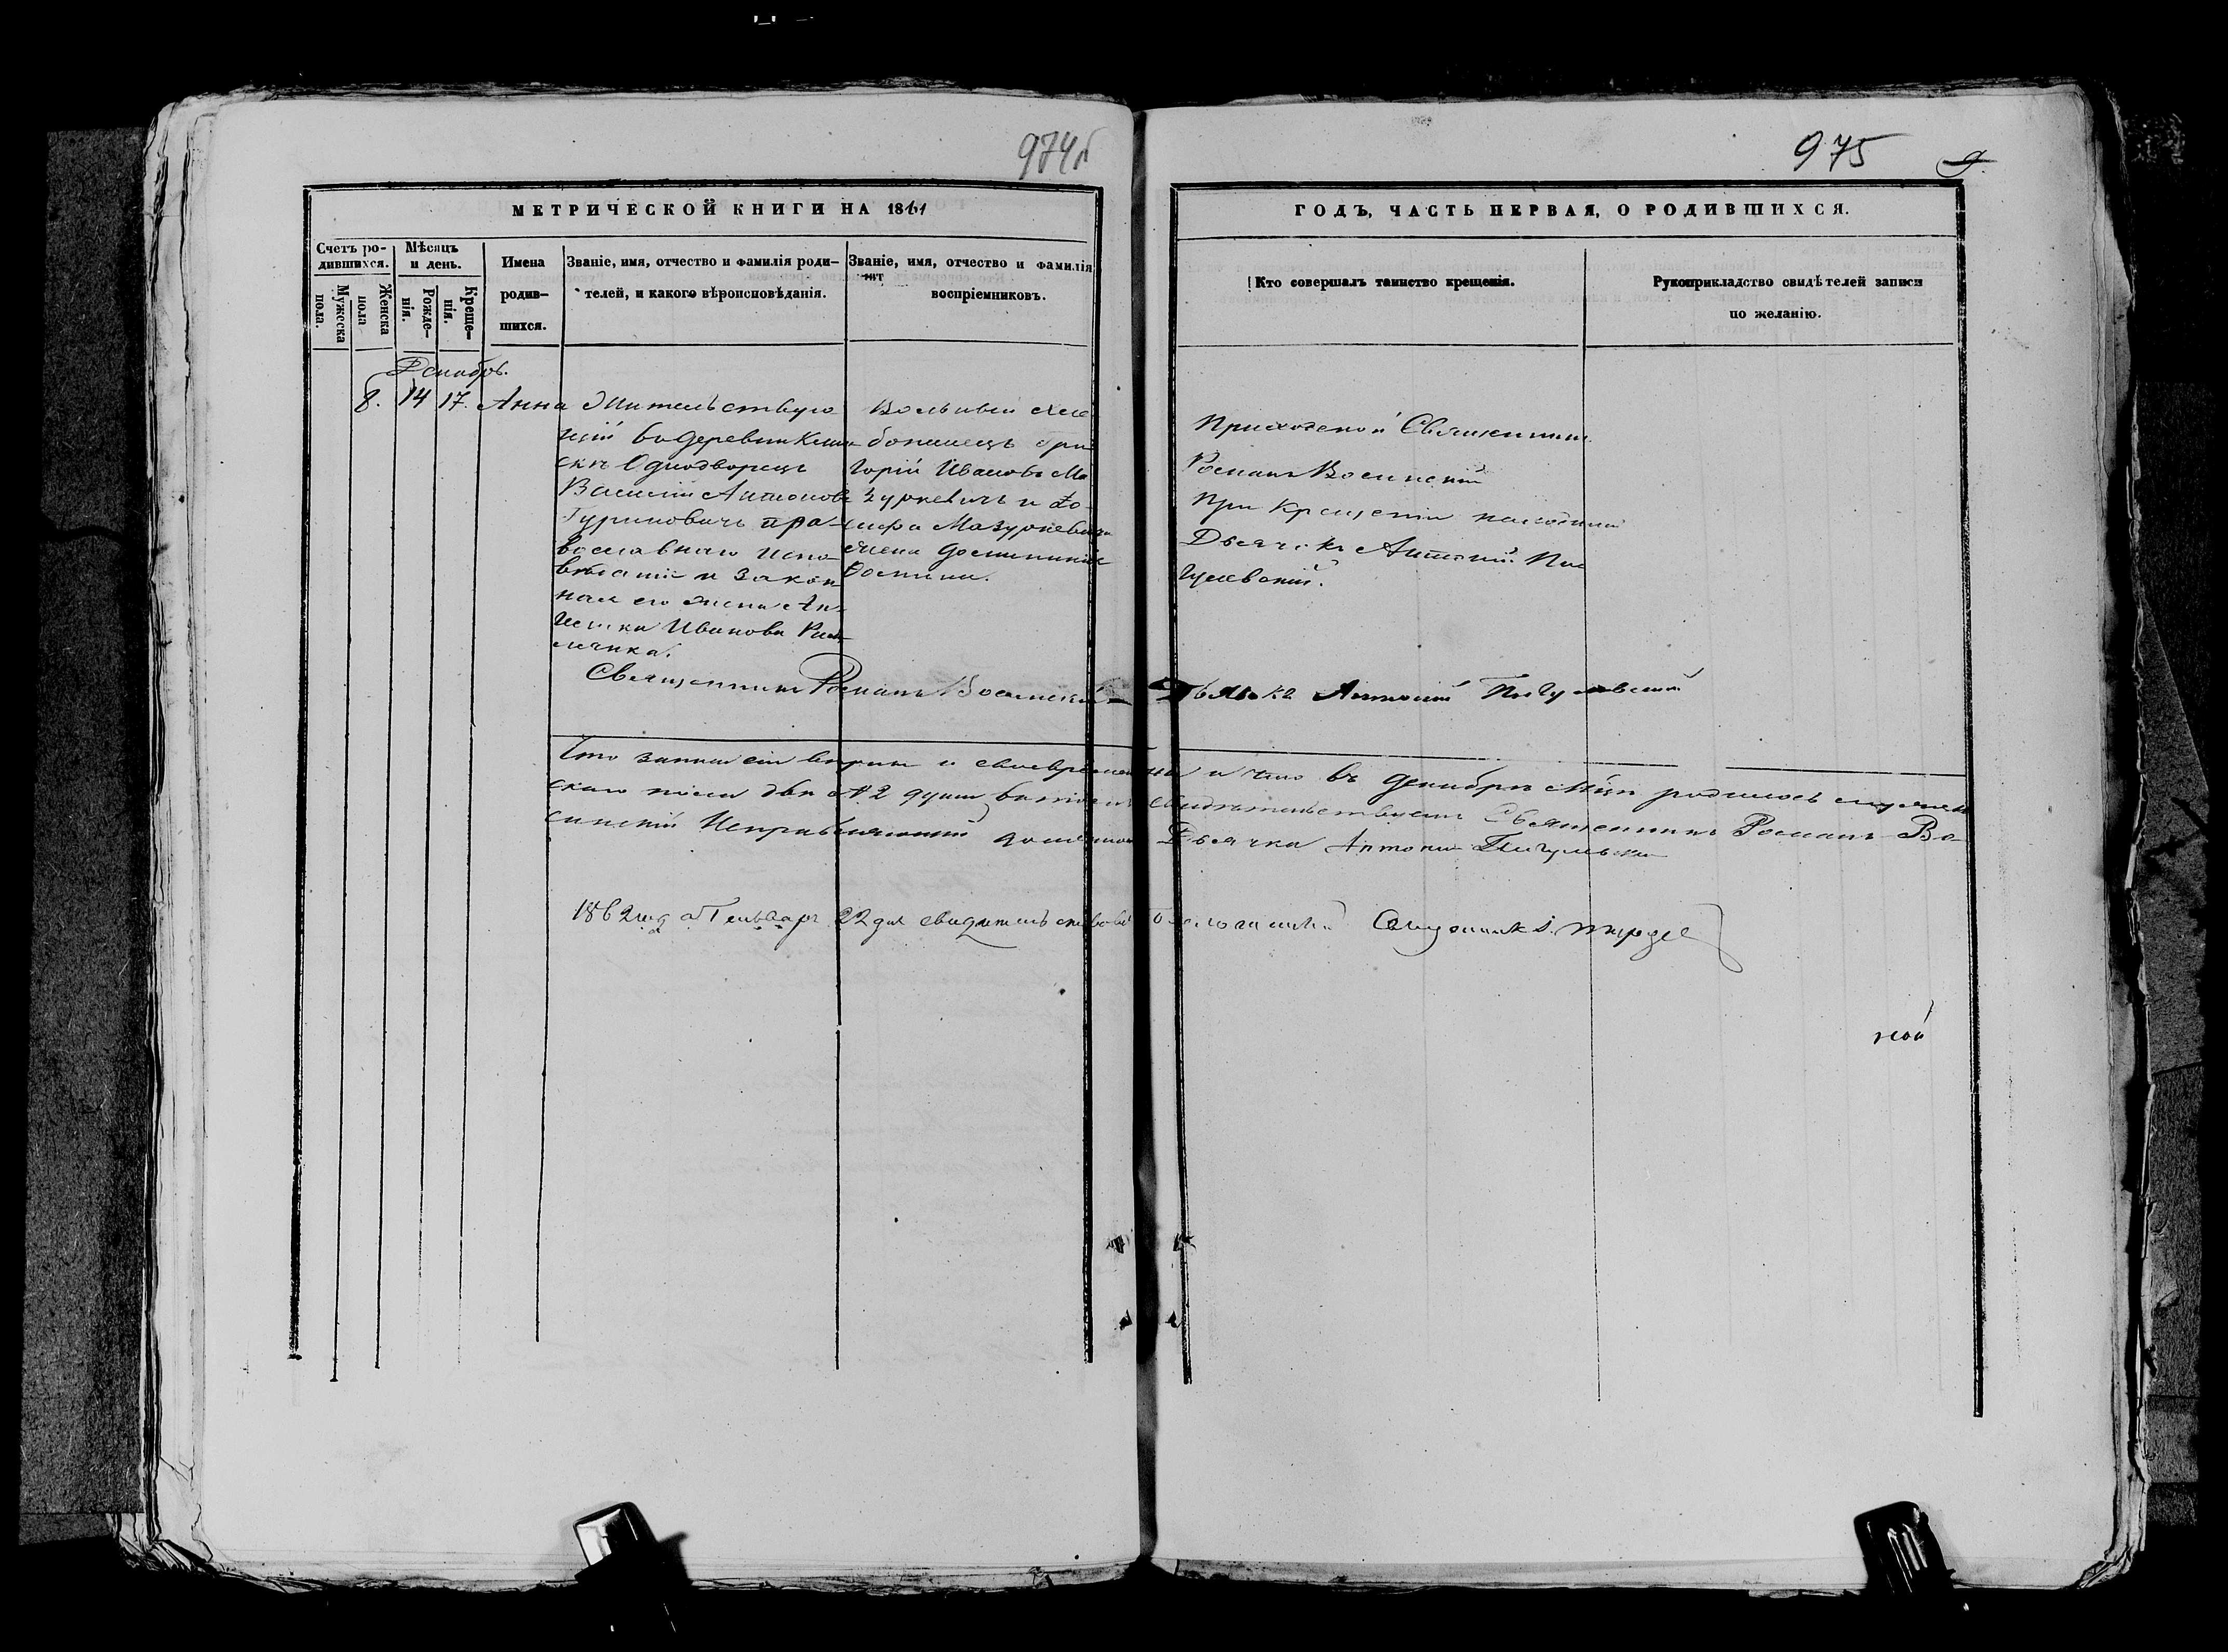 974б
975
9.
МЕТРИЧЕСКОЙ КНИГИ НА 1861
ГОДЪ, ЧАСТЬ ПЕРВАЯ, О РОДИВШИХСЯ.
Счетъ ро-
дившихся.
Мужеска
пола.
Женска
пола
Мѣсяцъ
и день.
Рожде-
нія.
Креще-
нія.
Имена
родив-
шихся.
Званіе, имя, отчество и фамилія роди-
телей, и какого вѣроисповѣданія.
Званіе, имя, отчество и фамилія
воспріемниковъ.
Кто совершалъ таинство крещенія.
Рукоприкладство свидѣтелей записи
по желанію.
Декабрь.
8. 14 17. Анна
Жительствую
щій въ деревни
Однодворецъ
Василій Антоновъ
Гуриновичъ пра-
вославнаго испо
вѣданія и закон
ная его жена Ан-
Иванова
Вольный хле
бопашецъ Гри
горій Ивановъ Ма
зуркевичъ и
Мазуркевича
жена
Приходской Священникъ
Романъ Восинскій
При крещеніи находился
Дьячекъ Антоній Пи
гулевскій.
Священникъ Романъ Восинскій
Дьячекъ Антоній Пигулевскій
Что записи вѣрны и своевременны и что въ Декабрѣ М-цѣ родилось
пола двѣ № 2 души въ томъ свидѣтельствуемъ Священникъ Романъ Во-
синскій Исправляющій должность Дьячка Антоній Пигулевскій
1862 года Генваря 22 дня свидѣтельствовалъ Благочинный Священникъ
ной